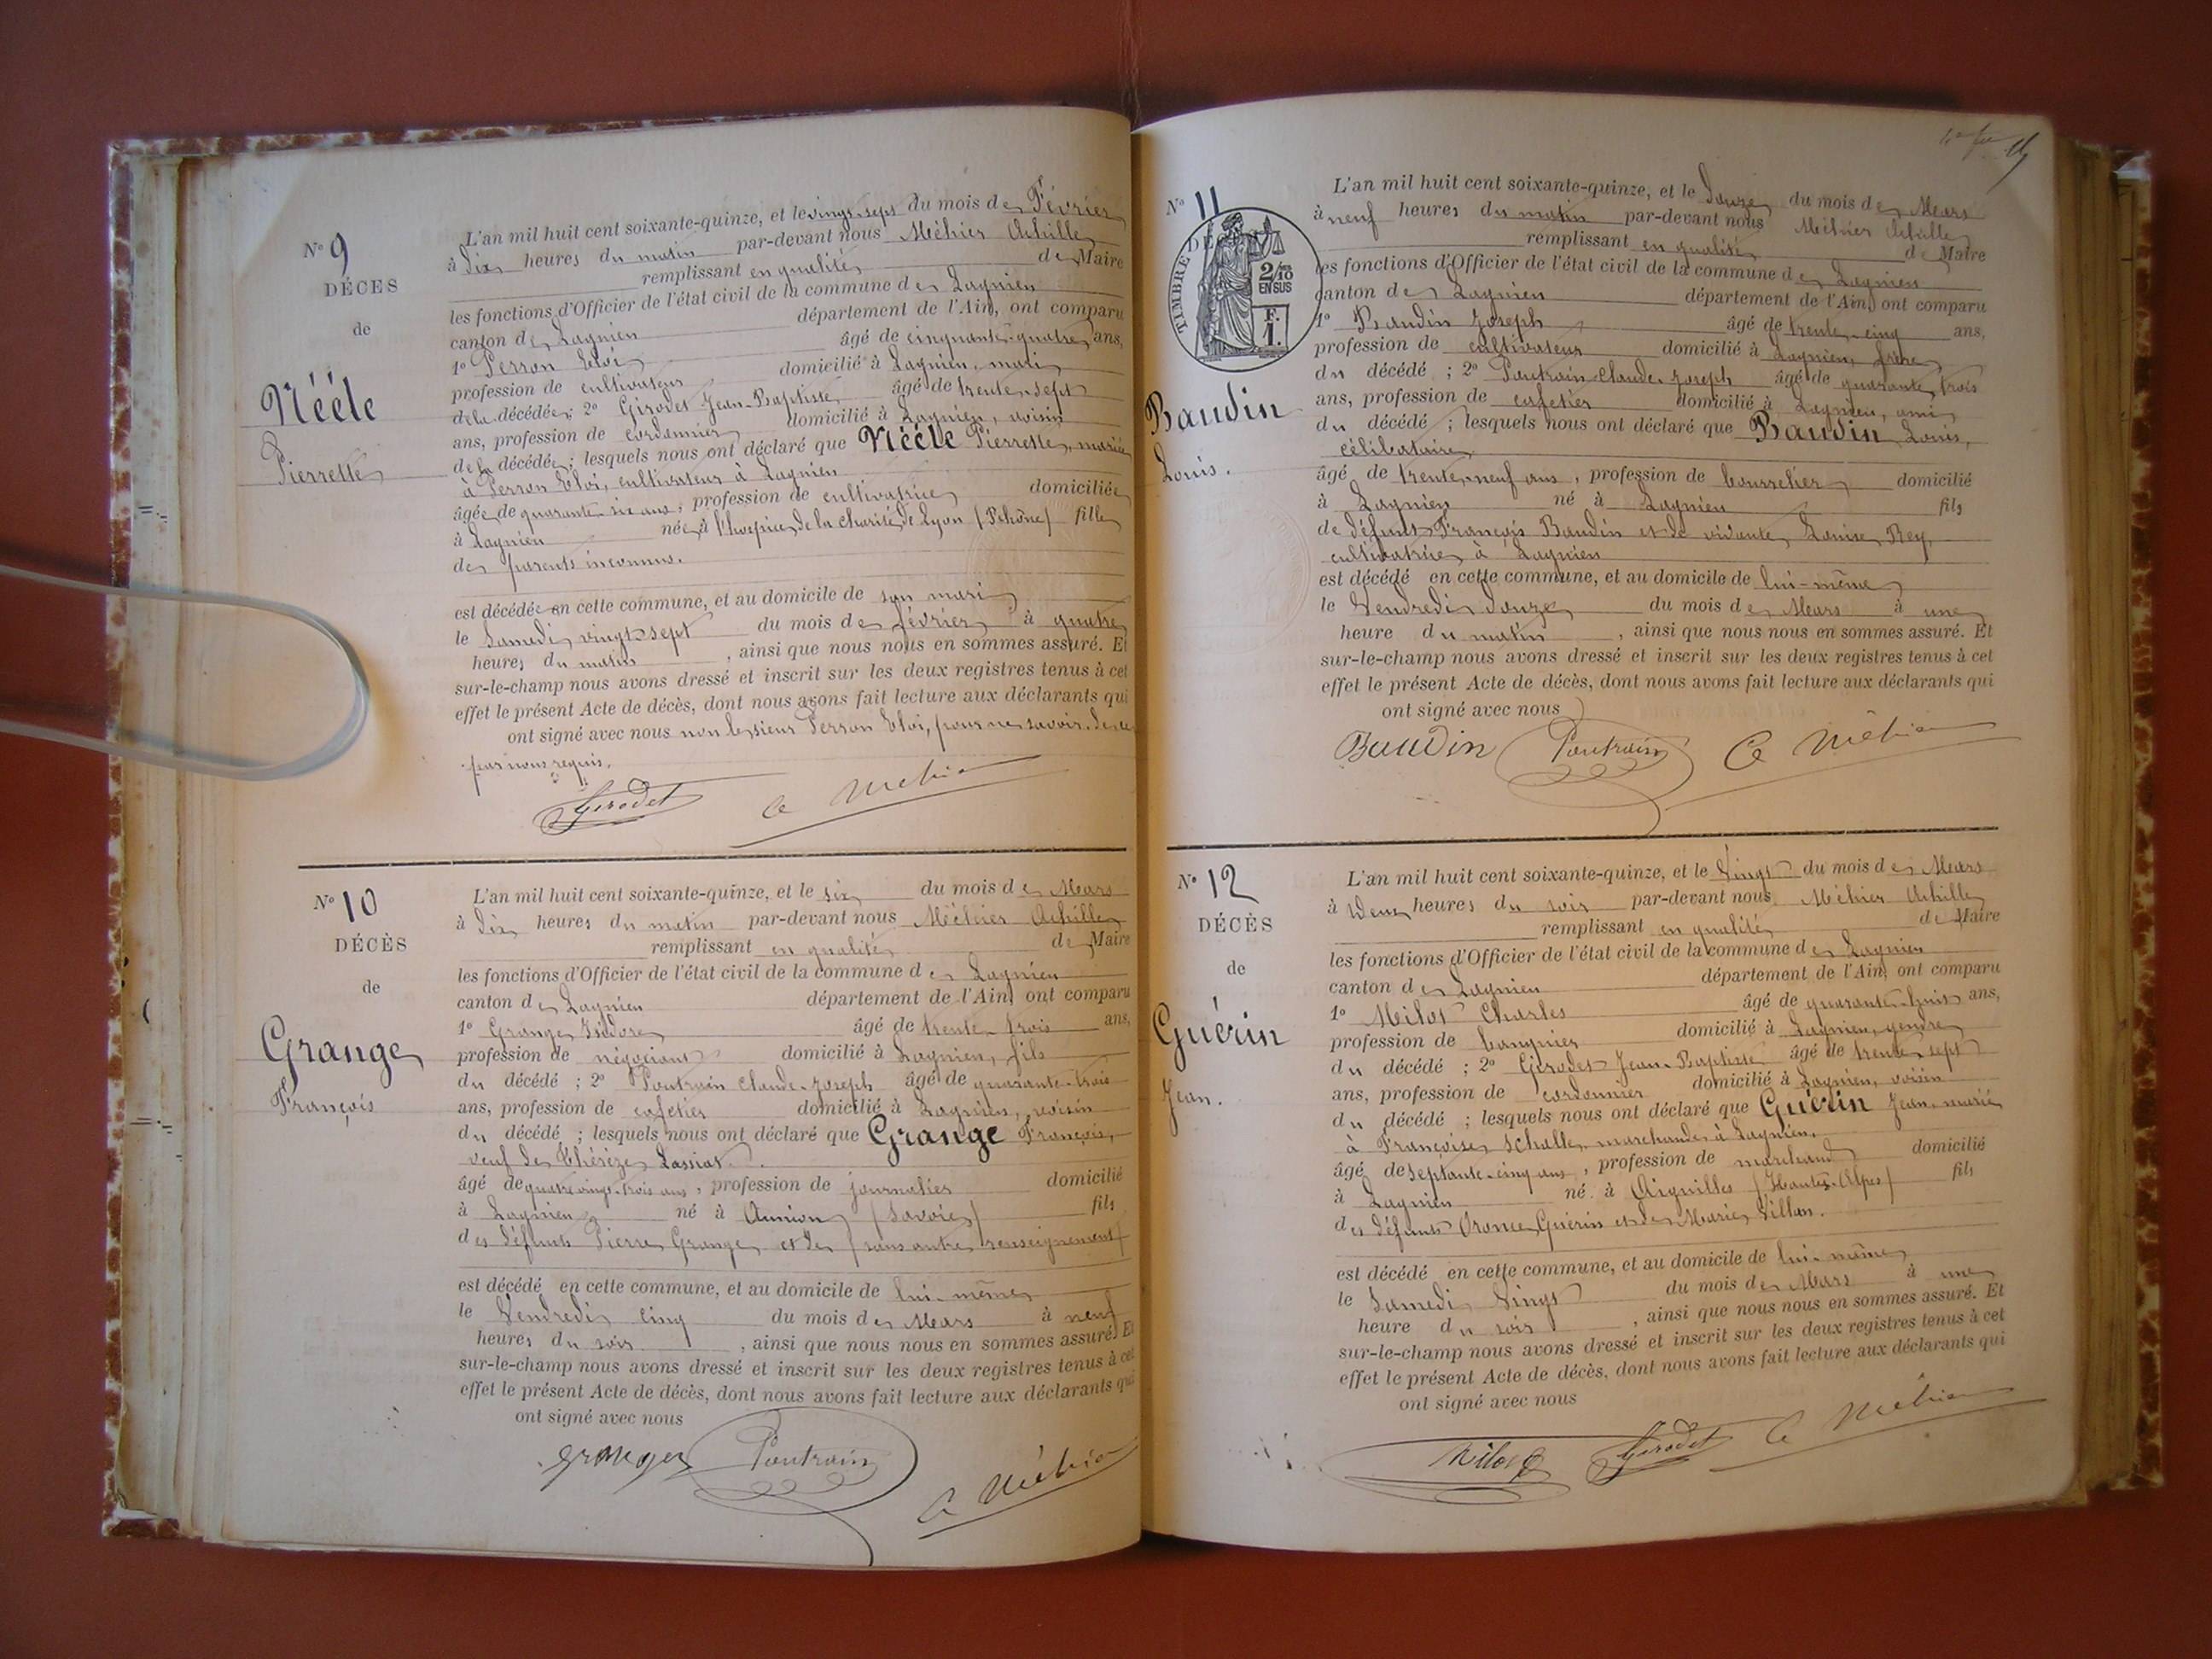 N° 9
DÉCES
de
Nééle
Pierrette
L'an mil huit cent soixante-quinze, et le vingt-sept du mois de Février
à dix heures du matin par-devant nous Méhier Achille
remplissant en qualité de Maire
les fonctions d'Officier de l'état civil de la commune de Lagnieu
canton de Lagnieu département de l'Ain, ont comparu
1° Perron Eloi âgé de cinquante-quatre ans,
profession de cultivateur domicilié à Lagnieu, mari
de la décédée; 2° Girodet Jean-Baptiste âgé de trente-sept
ans, profession de cordonnier domicilié à Lagnieu, voisin
de la décédée; lesquels nous ont déclaré que Nééle Pierrette, mariée
à Perron Eloi, cultivateur à Lagnieu
âgée de quarante-six ans, profession de cultivatrice domiciliée
à Lagnieu née à l'hospice de la Charité de Lyon (Rhône) fille
de parents inconnus.
est décédée en cette commune, et au domicile de son mari
le Samedi vingt-sept du mois de février à quatre
heures du matin, ainsi que nous nous en sommes assuré. Et
sur-le-champ nous avons dressé et inscrit sur les deux registres tenus à cet
effet le présent Acte de décès, dont nous avons fait lecture aux déclarants qui
ont signé avec nous non le sieur Perron Eloi, pour ne savoir, de ce
par nous requis.
Girodet A Méhier
N° 10
DÉCÈS
de
Grange
François
L'an mil huit cent soixante-quinze, et le six du mois de Mars
à dix heures du matin par-devant nous Méhier Achille
remplissant en qualité de Maire
les fonctions d'Officier de l'état civil de la commune de Lagnieu
canton de Lagnieu département de l'Ain, ont comparu
1° Grange Isidore âgé de trente-trois ans,
profession de négociant domicilié à Lagnieu, fils
du décédé; 2° Poutrain Claude-Joseph âgé de quarante-trois
ans, profession de cafetier domicilié à Lagnieu, voisin
du décédé; lesquels nous ont déclaré que Grange François,
veuf de Thérèze Lassiat.
âgé de quatre vingt-trois ans, profession de journalier domicilié
à Lagnieu né à (Savoie) fils
des défunts Pierre Grange et de (sans autre renseignement)
est décédé en cette commune, et au domicile de lui-même
le Vendredi cinq du mois de Mars à neuf
heures du soir, ainsi que nous nous en sommes assuré. Et
sur-le-champ nous avons dressé et inscrit sur les deux registres tenus à cet
effet le présent Acte de décès, dont nous avons fait lecture aux déclarants qui
ont signé avec nous
grange Poutrain A Méhier
N° 11
TIMBRE
2/10 EN SUS
F. 1.
Baudin
Louis.
L'an mil huit cent soixante-quinze, et le douze du mois de Mars
à neuf heures du matin par-devant nous Méhier Achille
remplissant en qualité de Maire
les fonctions d'Officier de l'état civil de la commune de Lagnieu
canton de Lagnieu département de l'Ain, ont comparu
1° Baudin Joseph âgé de trente-cinq ans,
profession de cultivateur domicilié à Lagnieu, frère
du décédé; 2° Poutrain Claude-Joseph âgé de quarante trois
ans, profession de cafetier domicilié à Lagnieu, ami
du décédé; lesquels nous ont déclaré que Baudin Louis,
célibataire
âgé de trente-neuf ans, profession de bourrelier domicilié
à Lagnieu né à Lagnieu fils
de défunt François Baudin et de vivante Louise Rey,
cultivatrice à Lagnieu
est décédé en cette commune, et au domicile de lui-même
le Vendredi douze du mois de Mars à une
heure du matin, ainsi que nous nous en sommes assuré. Et
sur-le-champ nous avons dressé et inscrit sur les deux registres tenus à cet
effet le présent Acte de décès, dont nous avons fait lecture aux déclarants qui
ont signé avec nous
Baudin Poutrain A Méhier
N° 12
DÉCÈS
de
Guérin
Jean.
L'an mil huit cent soixante-quinze, et le Vingt du mois de Mars
à deux heures du soir par-devant nous Méhier Achille
remplissant en qualité de Maire
les fonctions d'Officier de l'état civil de la commune de Lagnieu
canton de Lagnieu département de l'Ain, ont comparu
1° Milot Charles âgé de quarante-huit ans,
profession de domicilié à Lagnieu, gendre
du décédé; 2° Girodet Jean-Baptiste âgé de trente sept
ans, profession de cordonnier domicilié à Lagnieu, voisin
du décédé; lesquels nous ont déclaré que Guérin Jean, marié
à Françoise Schalle marchande à Lagnieu.
âgé de septante-cinq ans, profession de marchand domicilié
à Lagnieu né à Aiguilles (Hautes-Alpes) fils
des défunts Oronce Guérin et de Marie Villan.
est décédé en cette commune, et au domicile de lui-même
le Samedi Vingt du mois de Mars à une
heure du soir, ainsi que nous nous en sommes assuré. Et
sur-le-champ nous avons dressé et inscrit sur les deux registres tenus à cet
effet le présent Acte de décès, dont nous avons fait lecture aux déclarants qui
ont signé avec nous
Milot Girodet A Méhier